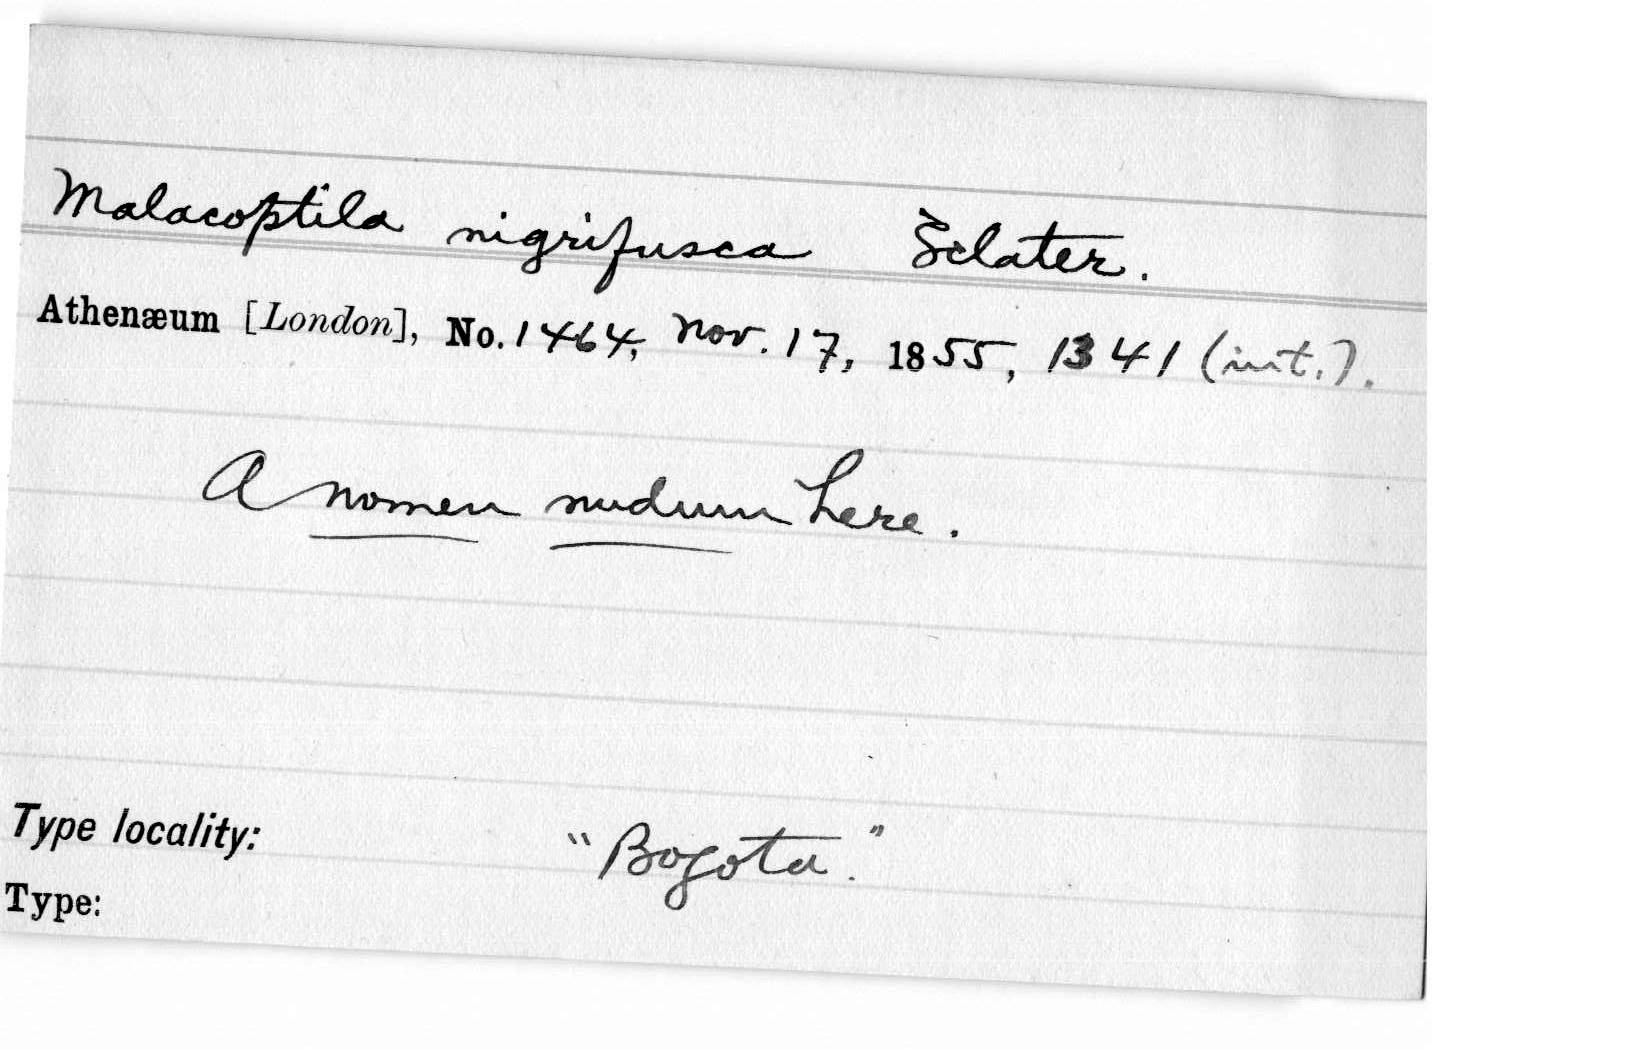 Malacoptila nigrifusca Sclater.
Athenæum [London], No. 1464, Nov. 17, 1855, 1341 (int.).
A nomen nudum here.
Type locality: "Bogota."
Type: